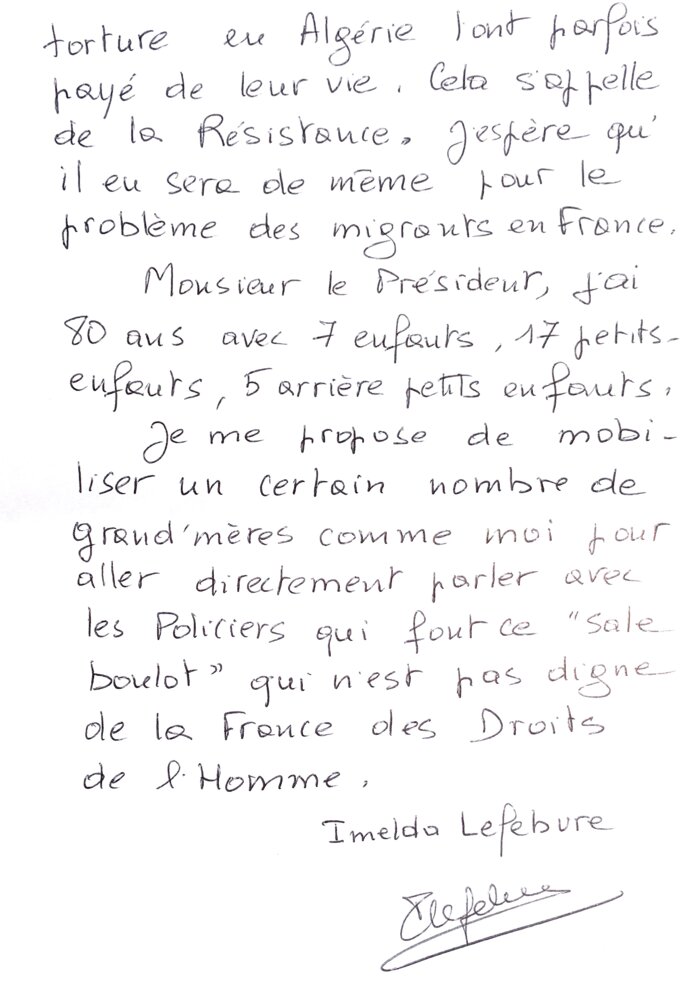 torture en Algérie l'ont parfois
payé de leur vie. Cela s'appelle
de la Résistance. J'espère qu'
il en sera de même pour le
problème des migrants en France.
Monsieur le Président, j'ai
80 ans avec 7 enfants, 17 petits-
enfants, 5 arrière petits enfants.
Je me propose de mobi-
liser un certain nombre de
grand'mères comme moi pour
aller directement parler avec
les Policiers qui font ce "sale
boulot" qui n'est pas digne
de la France des Droits
de l'Homme.
Imelda Lefebure
ILefebure